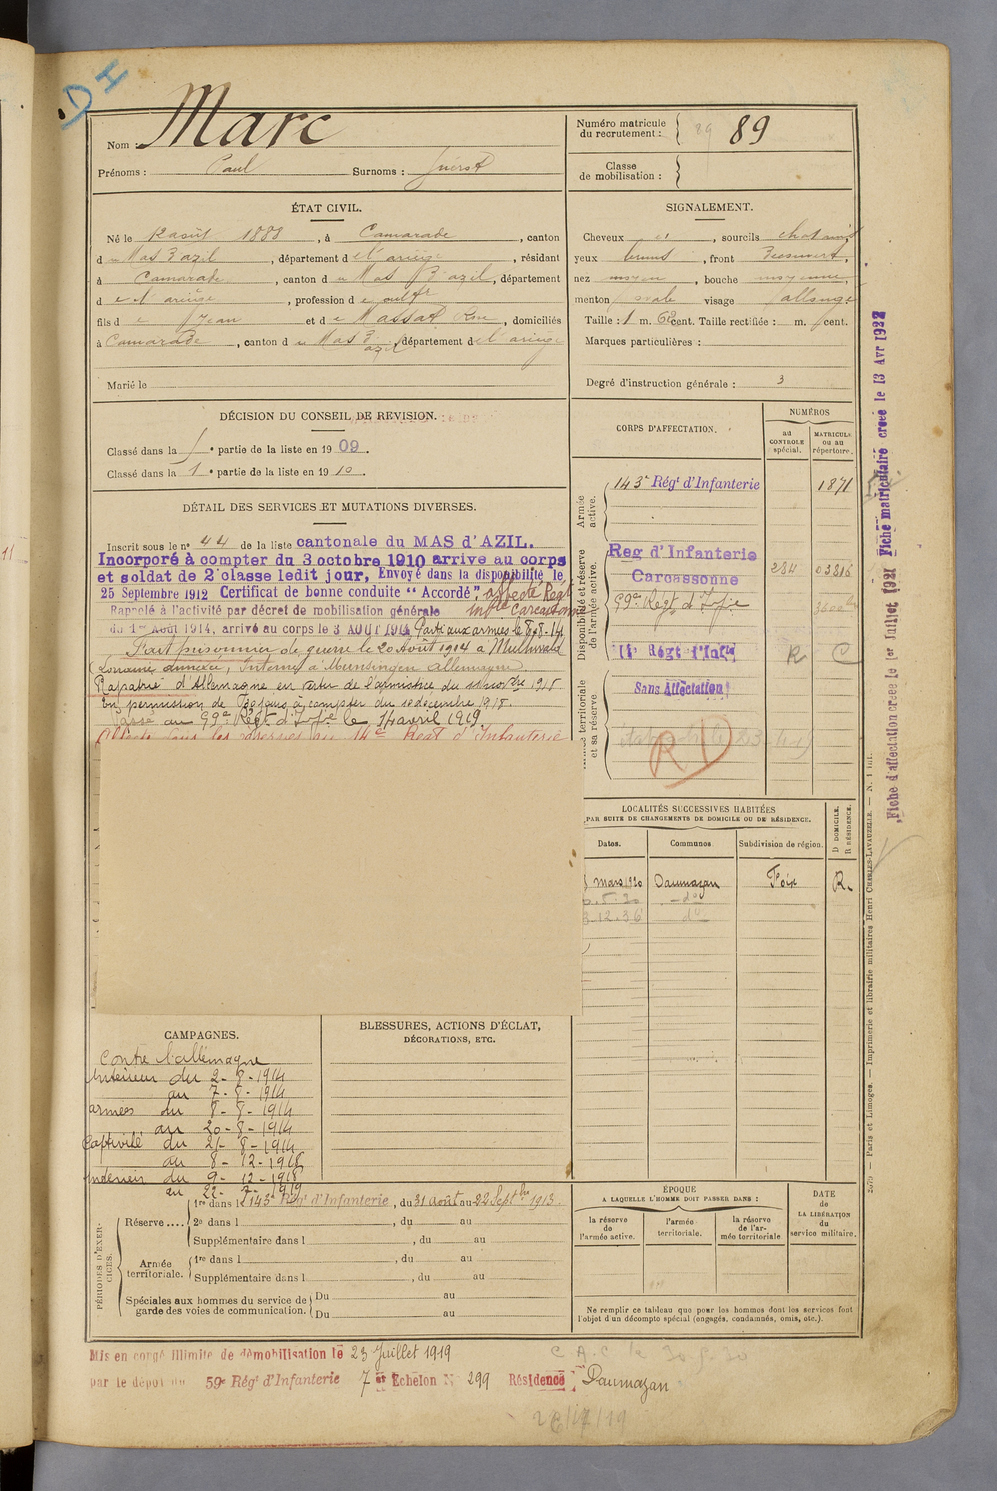 D H
Nom : Marc
Prénoms : Paul Surnoms :
Numéro matricule du recrutement : 89
Classe de mobilisation :
ÉTAT CIVIL.
Né le 12 août 1888, à Camarade, canton
d u Mas d'azil, département d e l'ariège, résidant
à Camarade, canton d u Mas d'azil, département
d e l'ariège, profession d e cultr
fils d e Jean et d e Massat Rose, domiciliés
à Camarade, canton d u Mas d'azil département d e l'ariège
Marié le
SIGNALEMENT.
Cheveux et, sourcils chatains
yeux bruns, front découvert,
nez moyen, bouche moyenne,
menton ovale visage allongé
Taille : 1 m. 62 cent. Taille rectifiée : m. cent.
Marques particulières :
Degré d'instruction générale : 3
DÉCISION DU CONSEIL DE REVISION.
Classé dans la partie de la liste en 1909.
Classé dans la 1e partie de la liste en 1910.
DÉTAIL DES SERVICES ET MUTATIONS DIVERSES.
Inscrit sous le n° 44 de la liste cantonale du MAS d'AZIL.
Incorporé à compter du 3 octobre 1910 arrive au corps
et soldat de 2e classe ledit jour, Envoyé dans la disponibilité le
25 Septembre 1912 Certificat de bonne conduite "Accordé". affecté Regt
Rappelé à l'activité par décret de mobilisation générale Inftie Carcassonne
du 1er Août 1914, arrivé au corps le 3 AOUT 1914 Parti aux armées le 8-8-14
Fait prisonnier de guerre le 20 Août 1914 à Mulhwald
(Lorraine annexée), Interné à Munsingen Allemagne
Rapatrié d'Allemagne en vertu de l'armistice du 11 novbre 1918
En permission de 30 jours à compter du 10 décembre 1918.
Passé au 99e Régt d'Infie le 14 avril 1919
Affecté dans les réserves au 14e Regt d'Infanterie
CORPS D'AFFECTATION.
NUMÉROS
au CONTROLE spécial.
MATRICULE ou au répertoire.
Armée active.
143e Régt d'Infanterie 1871
Disponibilité et réserve de l'armée active.
Reg d'Infanterie
Carcassonne 284 03816
99e Régt d'Infie
14e Régt d'Infie R C
Armée territoriale et sa réserve
Sans Affectation
R D
LOCALITÉS SUCCESSIVES HABITÉES
PAR SUITE DE CHANGEMENTS DE DOMICILE OU DE RÉSIDENCE.
Dates. Communes. Subdivision de région. D DOMICILE. R RÉSIDENCE.
mars 1920 Daumazan Foix R.
5.30 -do-
12.36 do
CAMPAGNES.
Contre l'allemagne
Intérieur du 2-8-1914
au 7-8-1914
armées du 8-8-1914
au 20-8-1914
Captivité du 21-8-1914
au 8-12-1918
Intérieur du 9-12-1918
au 22-7-1919
BLESSURES, ACTIONS D'ÉCLAT,
DÉCORATIONS, ETC.
PÉRIODES D'EXERCICES.
Réserve .... 1re dans l 143e Régt d'Infanterie, du 31 août au 22 Septbre 1913.
2e dans l , du au
Supplémentaire dans l , du au
Armée territoriale. 1re dans l , du au
Supplémentaire dans l , du au
Spéciales aux hommes du service de garde des voies de communication. Du au
Du au
ÉPOQUE
A LAQUELLE L'HOMME DOIT PASSER DANS :
la réserve de l'armée active.
l'armée territoriale.
la réserve de l'armée territoriale
DATE de LA LIBÉRATION du service militaire.
Ne remplir ce tableau que pour les hommes dont les services font
l'objet d'un décompte spécial (engagés, condamnés, omis, etc.).
Mis en congé illimité de démobilisation le 23 Juillet 1919
par le dépôt du 59e Régt d'Infanterie 7 Echelon N° 299 Résidence Daumazan
C.A.C. le 30-5-30
Fiche matriculaire créée le 13 Avr 1922
Fiche d'affectation créée le 1er Juillet 1921
Paris et Limoges. — Imprimerie et librairie militaires Henri CHARLES-LAVAUZELLE.
11